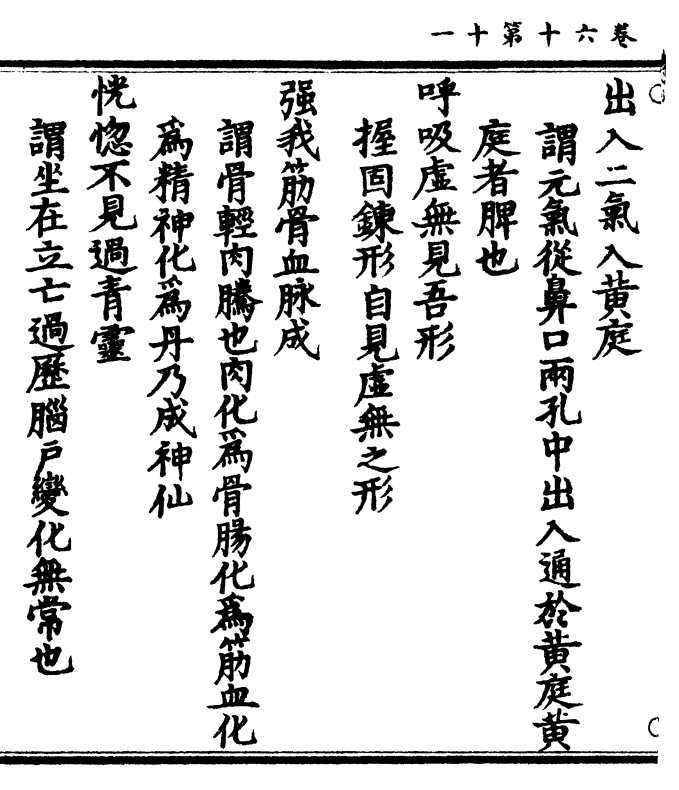 卷六十第十一
出入二氣入黃庭
謂元氣從鼻口兩孔中出入通於黃庭黃
庭者脾也
呼吸虛無見吾形
握固鍊形自見虛無之形
强我筋骨血脉成
謂骨輕肉騰也肉化爲骨腸化爲筋血化
爲精神化爲丹乃成神仙
恍惚不見過青靈
謂坐在立亡過歷腦戶變化無常也